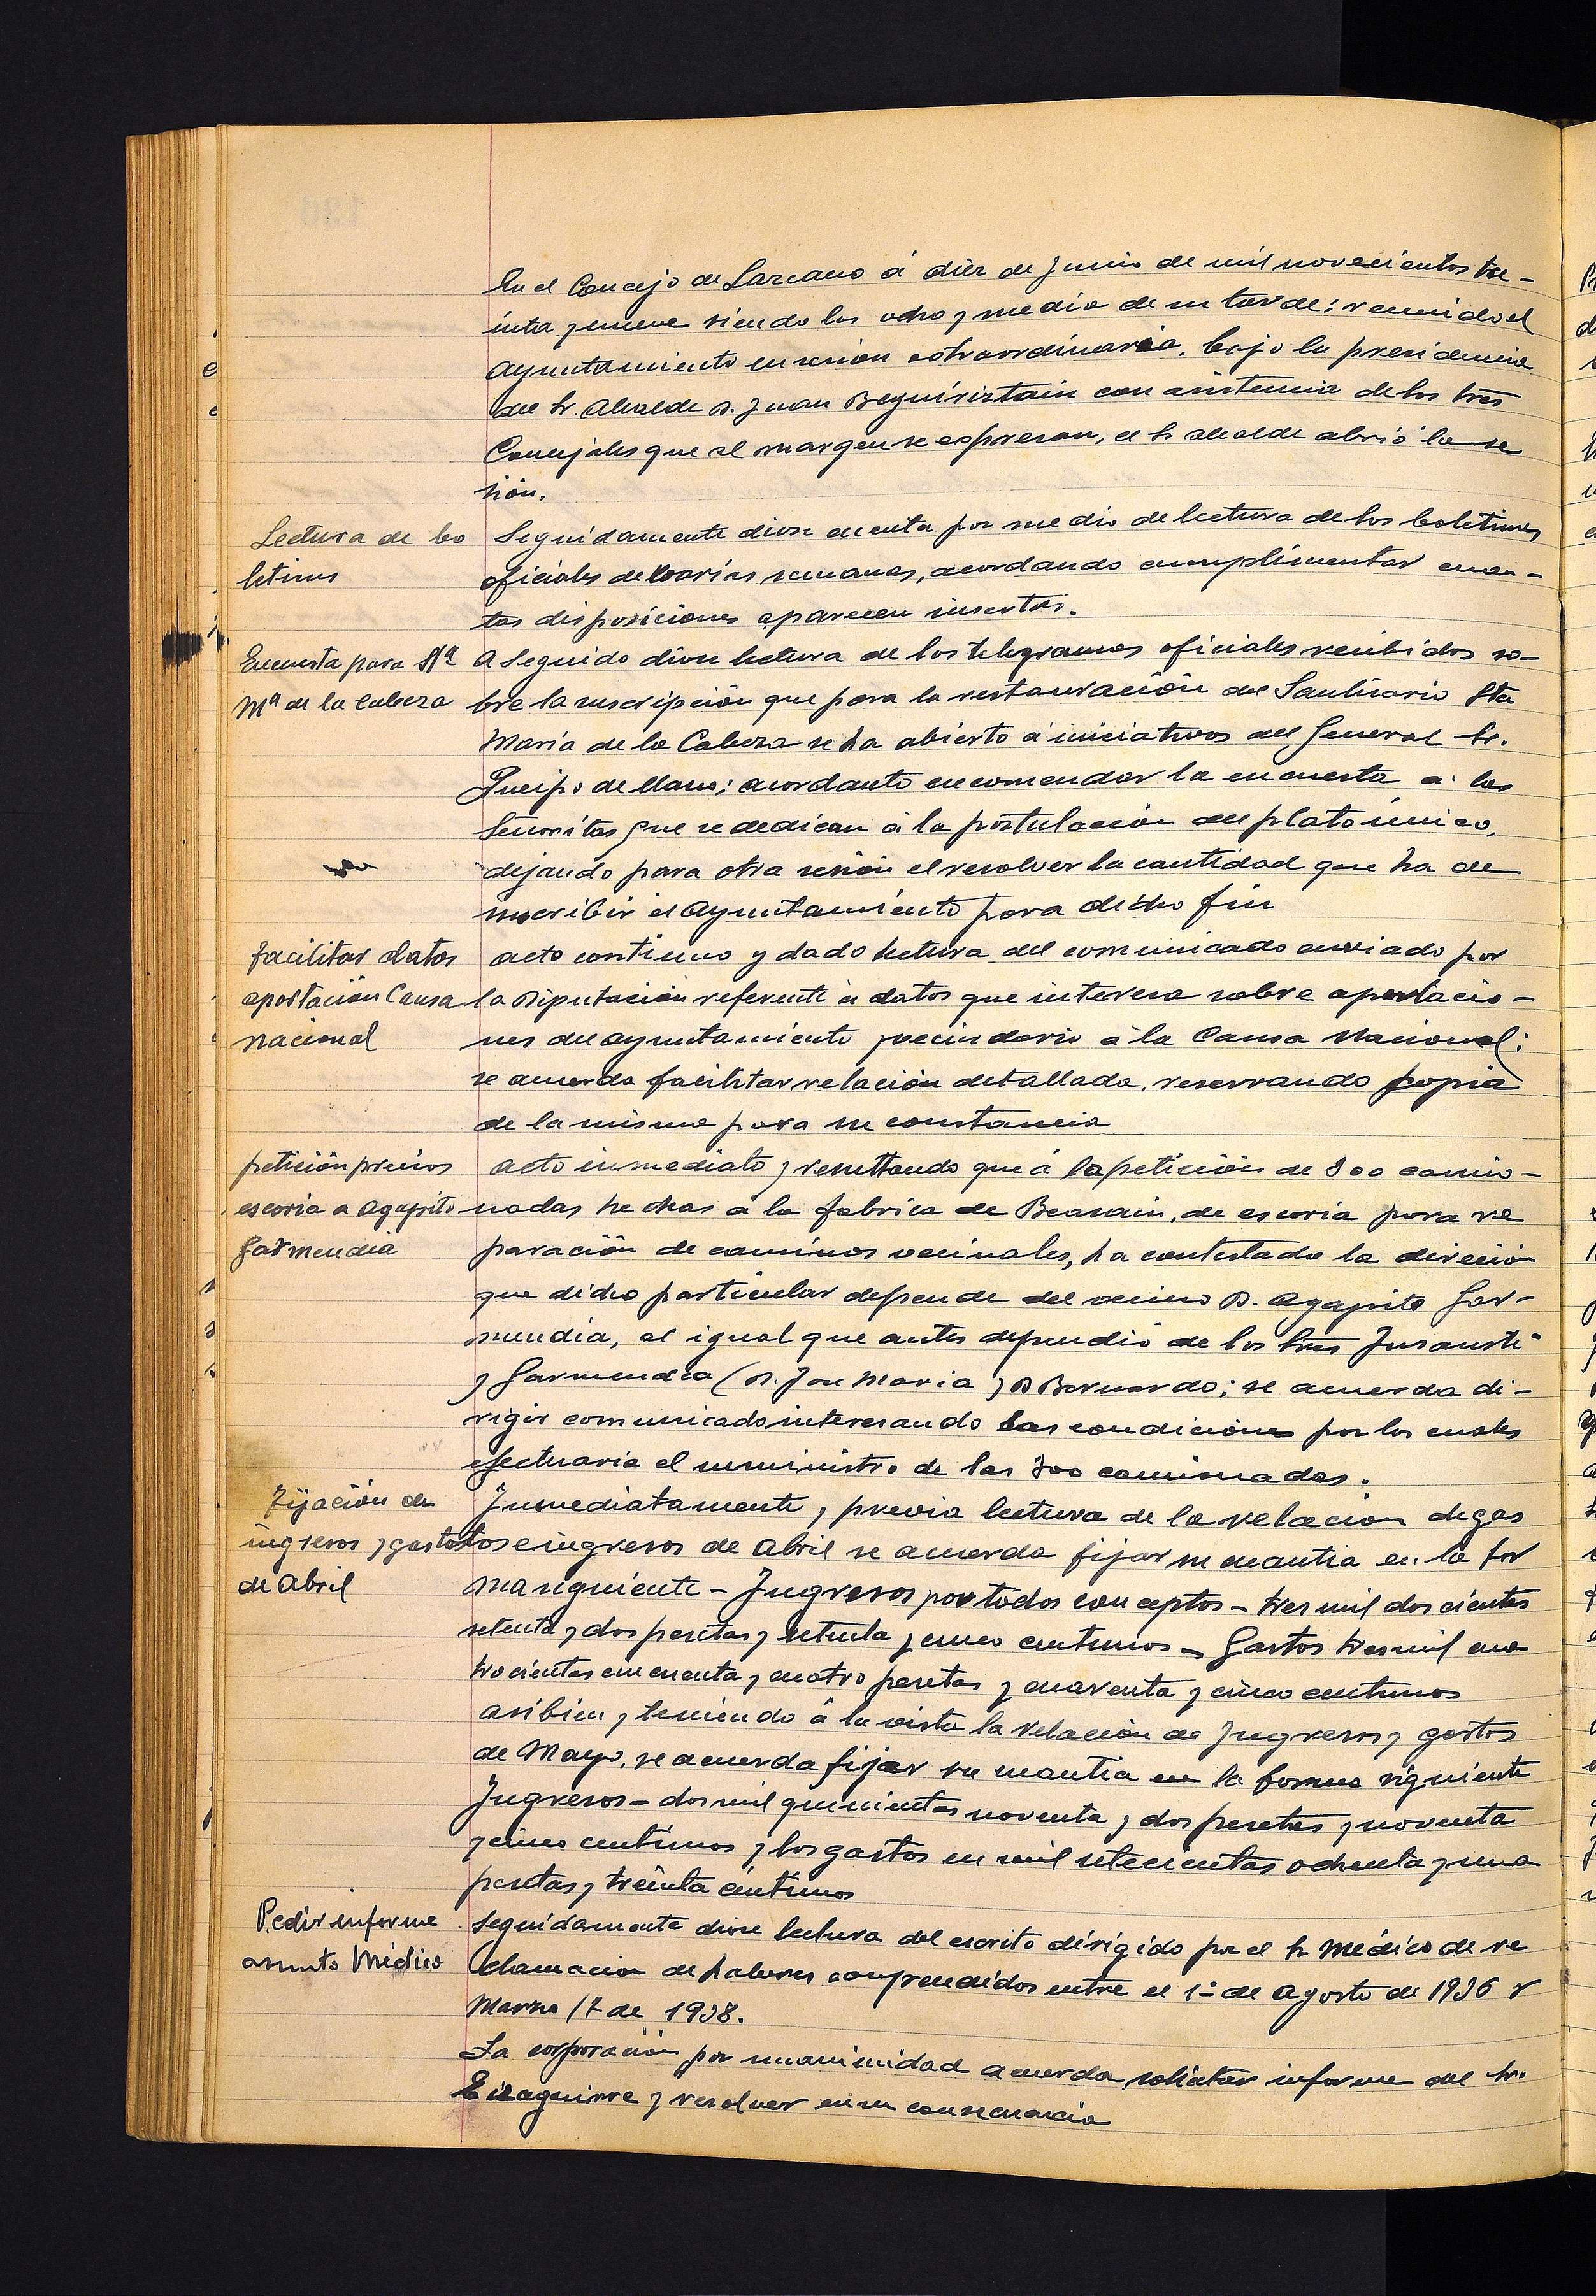 En el Concejo de Lazcano á diez de Junio de mil novecientos tre-
inta y nueve siendo las ocho y media de su tarde; reunido el
Ayuntamiento en sesion extraordinaria, bajo la presidencia
del Sr. Alcalde D. Juan Beguiristain con asistencia de los tres
Concejales que al margen se expresan, el Sr alcalde abrió la se
sión.
Lectura de bo
letines
Seguidamente diose cuenta por medio de lectura de los boletines
oficiales de varias semanas, acordando cumplimentar cuan-
tas disposiciones aparecen insertas.
Encuesta para Stª
Mª de la Cabeza
A Seguido diose lectura de los telegramas oficiales recibidos so-
bre la suscripción que para la restauración del Santuario Sta
Maria de la Cabeza se ha abierto á iniciativas del General Sr.
Queipo de llano; acordante encomendar la encuesta a las
Señoritas que se dedican á la postulación del plato único,
dejando para otra sesión el resolver la cantidad que ha de
suscribir el Ayuntamiento para dicho fin
facilitar datos
aportación Causa
nacional
acto continuo y dado lectura del comunicado enviado por
la Diputación referente a datos que interesa sobre aportacio-
nes del ayuntamiento y vecindario á la Causa Nacional;
se acuerda facilitar relación detallada, reservando copia
de la misma para su constancia
petición precios
escoria a Agapito
Garmendia
acto inmediato y resultando que á la petición de 300 camio-
nadas hechas a la fabrica de Beasain, de escoria para re
paración de caminos vecinales, ha contestado la direción
que dicho particular depende del vecino D. Agapito Gar-
mendia, al igual que antes dependió de los Sres Insausti
y Garmendia (D. Jose Maria y D Bernardo; se acuerda di-
rigir comunicado interesando las condiciones por las cuales
efectuaria el suministro de las 300 camionadas.
Fijación de
ingresos y gastos
de Abril
Inmediatamente y previa lectura de la relación de gas
tos e ingresos de Abril se acuerda fijar su cuantia en la for
ma siguiente - Ingresos por todos conceptos - tres mil doscientas
setenta y dos pesetas y setenta y cinco centimos - Gastos tres mil cua
trocientas cincuenta y cuatro pesetas y cuarenta y cinco centimos
asibien y teniendo á la vista la relación de Ingresos y gastos
de Mayo, se acuerda fijar su cuantia en la forma siguiente
Ingresos - dos mil quinientas noventa y dos pesetas y noventa
y cinco centimos y los gastos en mil setecientas ochenta y una
pesetas y treinta centimos
Pedir informe
asunto Médico
Seguidamente diose lectura del escrito dirigido por el Sr Médico de re
clamacion de haberes comprendidos entre el 1º de Agosto de 1936 y
Marzo 17 de 1938.
La corporación por unanimidad acuerda solicitar informe del Sr.
Eizaguirre y resolver en su consecuencia